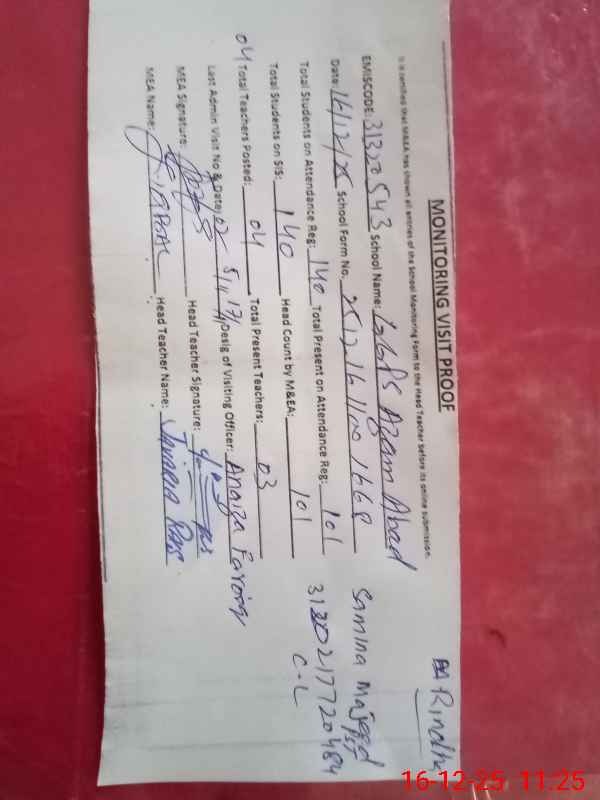 MONITORING VISIT PROOF
It is certified that M&EA has shown all entries of the School Monitoring Form to the Head Teacher before its online submission.
EMISCODE: 31320543 School Name: GGPS Azam Abad
Date: 16/12/25 School Form No. 25121611001668
Total Students on Attendance Reg: 140 Total Present on Attendance Reg: 101
Total Students on SIS: 140 Head Count by M&EA: 101
04 Total Teachers Posted: 04 Total Present Teachers: 03
Last Admin Visit No & Date: Desig of Visiting Officer: Anaiza Farooq
MEA Signature: Head Teacher Signature:
MEA Name: Head Teacher Name: Javaria
Samina Majeed
PST
3120217720484
C-L
16-12-25 11.25